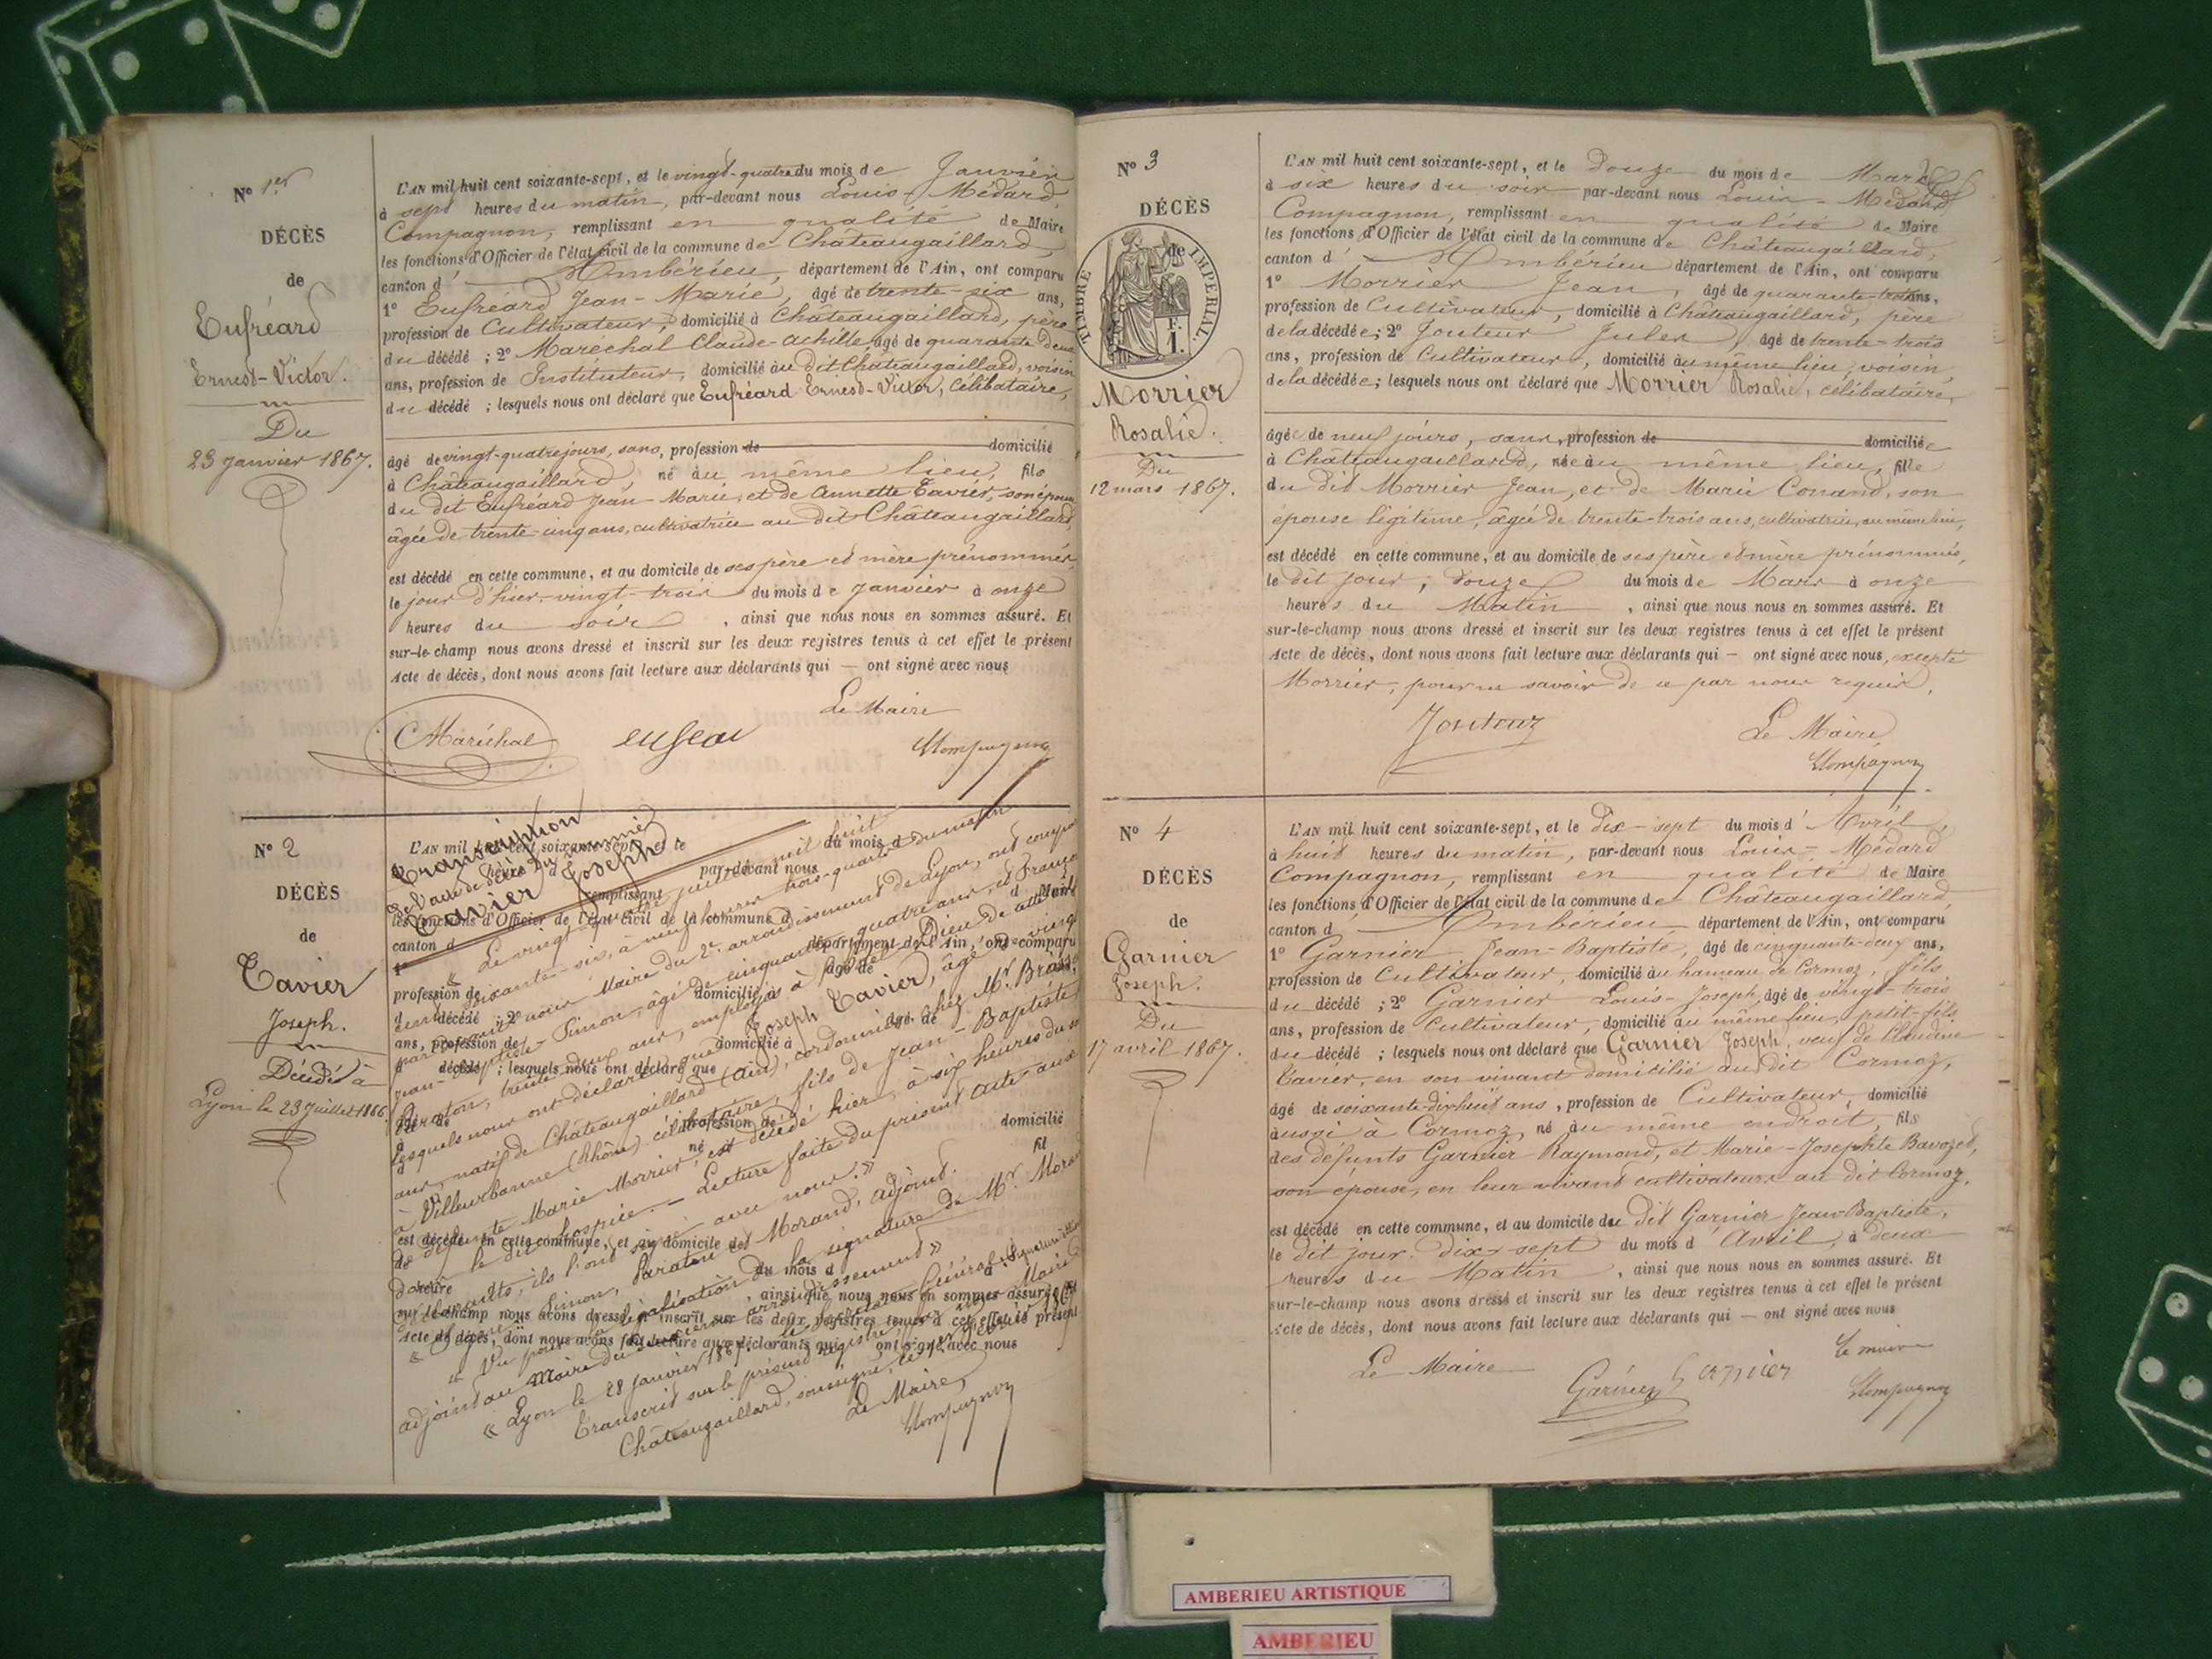 N° 1er
DÉCÈS
de
Eufréard
Ernest-Victor.
Du
23 Janvier 1867.
L'AN mil huit cent soixante-sept, et le vingt-quatre du mois de Janvier
à sept heures du matin, par-devant nous Louis-Médard
Compagnon, remplissant en qualité de Maire
les fonctions d'Officier de l'état civil de la commune de Châteaugaillard,
canton d'Ambérieu, département de l'Ain, ont comparu
1° Eufréard Jean-Marie, âgé de trente-six ans,
profession de Cultivateur, domicilié à Châteaugaillard, père
du décédé ; 2° Maréchal Claude-Achille âgé de quarante deux
ans, profession de Instituteur, domicilié au dit Châteaugaillard, voisin
du décédé ; lesquels nous ont déclaré que Eufréard Ernest-Victor, célibataire,
âgé de vingt-quatre jours, sans, profession de domicilié
à Châteaugaillard, né au même lieu, fils
du dit Eufréard Jean-Marie, et de Annette Tavier, son épouse
âgée de trente-cinq ans, cultivatrice au dit Châteaugaillard,
est décédé en cette commune, et au domicile de ses père et mère prénommés,
le jour d'hier vingt-trois du mois de Janvier à onze
heures du soir, ainsi que nous nous en sommes assuré. Et
sur-le-champ nous avons dressé et inscrit sur les deux registres tenus à cet effet le présent
Acte de décès, dont nous avons fait lecture aux déclarants qui — ont signé avec nous
Le Maire
Maréchal
Compagnon
N° 2
DÉCÈS
de
Tavier
Joseph.
Décédé à
Lyon le 23 Juillet 1866.
Transcription
de l'acte de décès du nommé
Tavier Joseph
« Le vingt-quatre juillet mil huit
cent soixante-six, à neuf heures trois-quarts du matin
par devant nous Maire du 2e arrondissement de Lyon, ont comparu
Jean-Baptiste Simon, âgé de cinquante quatre ans, et François
Paraton, trente-deux ans, employés à l'hôtel-Dieu de cette ville
lesquels nous ont déclaré que Joseph Tavier, âgé de vingt
ans, natif de Châteaugaillard (Ain), cordonnier chez Mr
à Villeurbanne (Rhône) célibataire, fils de Jean-Baptiste
et de défunte Marie Morrier, est décédé hier, à six heures du soir
dans le dit hospice. — Lecture faite du présent acte aux
déclarants, ils l'ont signé avec nous. »
« Signé Simon, Paraton et Morand, adjoint.
« Vu pour légalisation de la signature de Mr. Morand
adjoint au Maire du arrondissement »
« Lyon le 28 Janvier 1867.
Transcrit sur le présent registre par nous Maire de
Châteaugaillard, soussigné, le
Le Maire
Compagnon
L'AN mil huit cent soixante-sept, et le du mois d
par-devant nous
remplissant
les fonctions d'Officier de l'état civil de la commune d
canton d département de l'Ain, ont comparu
1° âgé de
profession de domicilié à
d décédé ; 2° âgé de
ans, profession de domicilié à
d décédé ; lesquels nous ont déclaré que
profession de domicilié
né fil
est décédé en cette commune, et au domicile de
du mois d à
heure, ainsi que nous nous en sommes assuré. Et
sur-le-champ nous avons dressé et inscrit sur les deux registres tenus à cet effet le présent
Acte de décès, dont nous avons fait lecture aux déclarants qui ont signé avec nous
N° 3
DÉCÈS
de
TIMBRE IMPÉRIAL.
Morrier
Rosalie.
Du
12 mars 1867.
L'AN mil huit cent soixante-sept, et le douze du mois de Mars
à six heures du soir par-devant nous Louis-Médard
Compagnon, remplissant en qualité de Maire
les fonctions d'Officier de l'état civil de la commune de Châteaugaillard,
canton d'Ambérieu département de l'Ain, ont comparu
1° Morrier Jean, âgé de quarante-trois ans,
profession de Cultivateur, domicilié à Châteaugaillard, père
de la décédée ; 2° Jouteur Jules, âgé de trente-trois
ans, profession de Cultivateur, domicilié au même lieu, voisin,
de la décédée ; lesquels nous ont déclaré que Morrier Rosalie, célibataire,
âgée de neuf jours, sans, profession de domiciliée
à Châteaugaillard, née au même lieu, fille
du dit Morrier Jean, et de Marie Conand, son
épouse légitime, âgée de trente-trois ans, cultivatrice, au même lieu,
est décédé en cette commune, et au domicile de ses père et mère prénommés,
le dit jour, douze du mois de Mars à onze
heures du Matin, ainsi que nous nous en sommes assuré. Et
sur-le-champ nous avons dressé et inscrit sur les deux registres tenus à cet effet le présent
Acte de décès, dont nous avons fait lecture aux déclarants qui — ont signé avec nous, excepté
Morrier, pour ne savoir de ce par nous requis.
Le Maire
Compagnon
N° 4
DÉCÈS
de
Garnier
Joseph.
Du
17 avril 1867.
L'AN mil huit cent soixante-sept, et le dix-sept du mois d'Avril,
à huit heures du matin, par-devant nous Louis-Médard
Compagnon, remplissant en qualité de Maire
les fonctions d'Officier de l'état civil de la commune de Châteaugaillard,
canton d'Ambérieu, département de l'Ain, ont comparu
1° Garnier Jean-Baptiste, âgé de cinquante-deux ans,
profession de Cultivateur, domicilié au hameau de Cormoz, fils
du décédé ; 2° Garnier Louis-Joseph, âgé de vingt-trois
ans, profession de Cultivateur, domicilié au même lieu, petit-fils
du décédé ; lesquels nous ont déclaré que Garnier Joseph, veuf de Claudine
Tavier, en son vivant domicilié au dit Cormoz,
âgé de soixante-dix-huit ans, profession de Cultivateur, domicilié
aussi à Cormoz, né au même endroit, fils
des défunts Garnier Raymond, et Marie-Josephte Bavozet,
son épouse, en leur vivant cultivateurs au dit Cormoz,
est décédé en cette commune, et au domicile du dit Garnier Jean-Baptiste,
le dit jour dix-sept du mois d'Avril, à deux
heures du Matin, ainsi que nous nous en sommes assuré. Et
sur-le-champ nous avons dressé et inscrit sur les deux registres tenus à cet effet le présent
Acte de décès, dont nous avons fait lecture aux déclarants qui — ont signé avec nous
Le Maire
Garnier Garnier
Le maire
Compagnon
AMBERIEU ARTISTIQUE
AMBERIEU